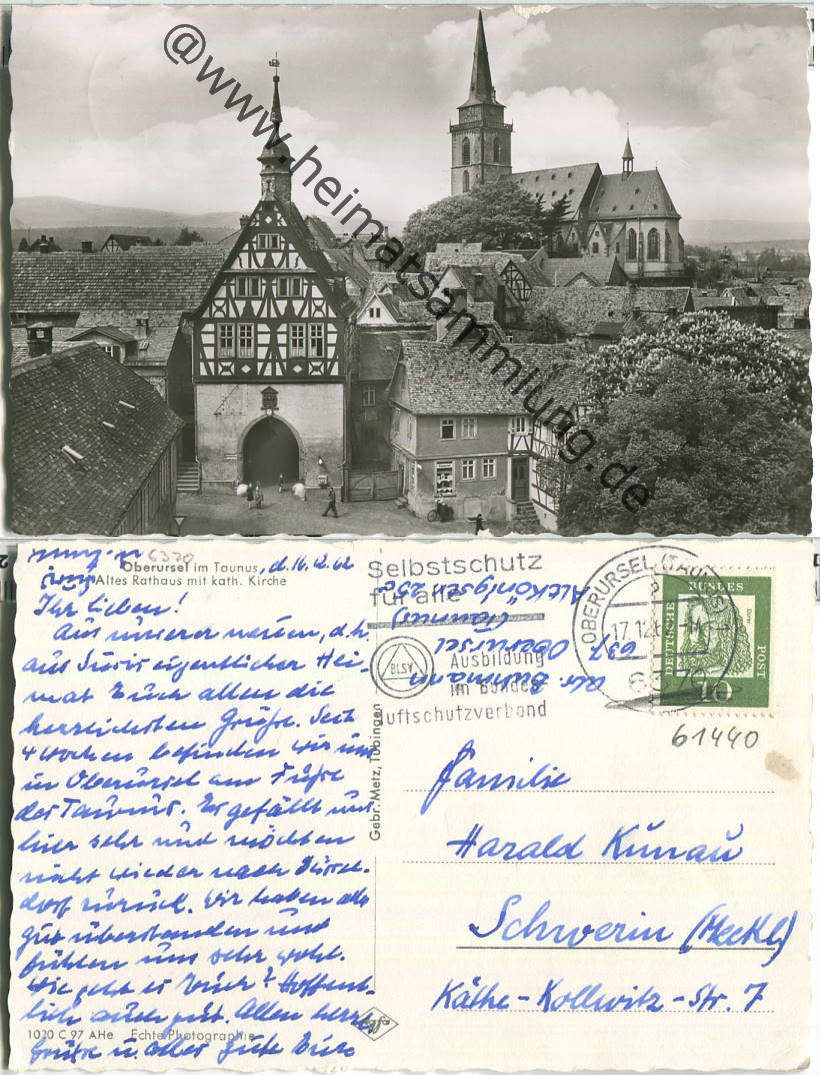 @www.heimatsammlung.de
6370
Oberursel im Taunus, d. 16.12.62
Altes Rathaus mit kath. Kirche
Ihr Lieben!
Aus unserer neuen, d.h.
aus Susis eigentlicher Hei-
mat Euch allen die
herzlichsten Grüße. Seit
4 Wochen befinden wir uns
in Oberursel am Fuße
des Taunus. Es gefällt uns
hier sehr und möchten
nicht wieder nach Düssel-
dorf zurück. Wir haben alles
gut überstanden und
fühlen uns sehr wohl.
Wie geht es Euch? Hoffent-
lich auch gut. Allen herzl.
Grüße u. alles Gute Eure
1020 C 97 AHe Echte Photographie
Gebr. Metz, Tübingen
Selbstschutz
für alle
BLSV
Ausbildung
im Bundes
luftschutzverband
Oberursel
(Taunus)
Altkönigstr. 25c
OBERURSEL (TAUNUS)
17.12.
DEUTSCHE BUNDES POST
10
61440
Familie
Harald Kunau
Schwerin (Meckl)
Käthe-Kollwitz-Str. 7